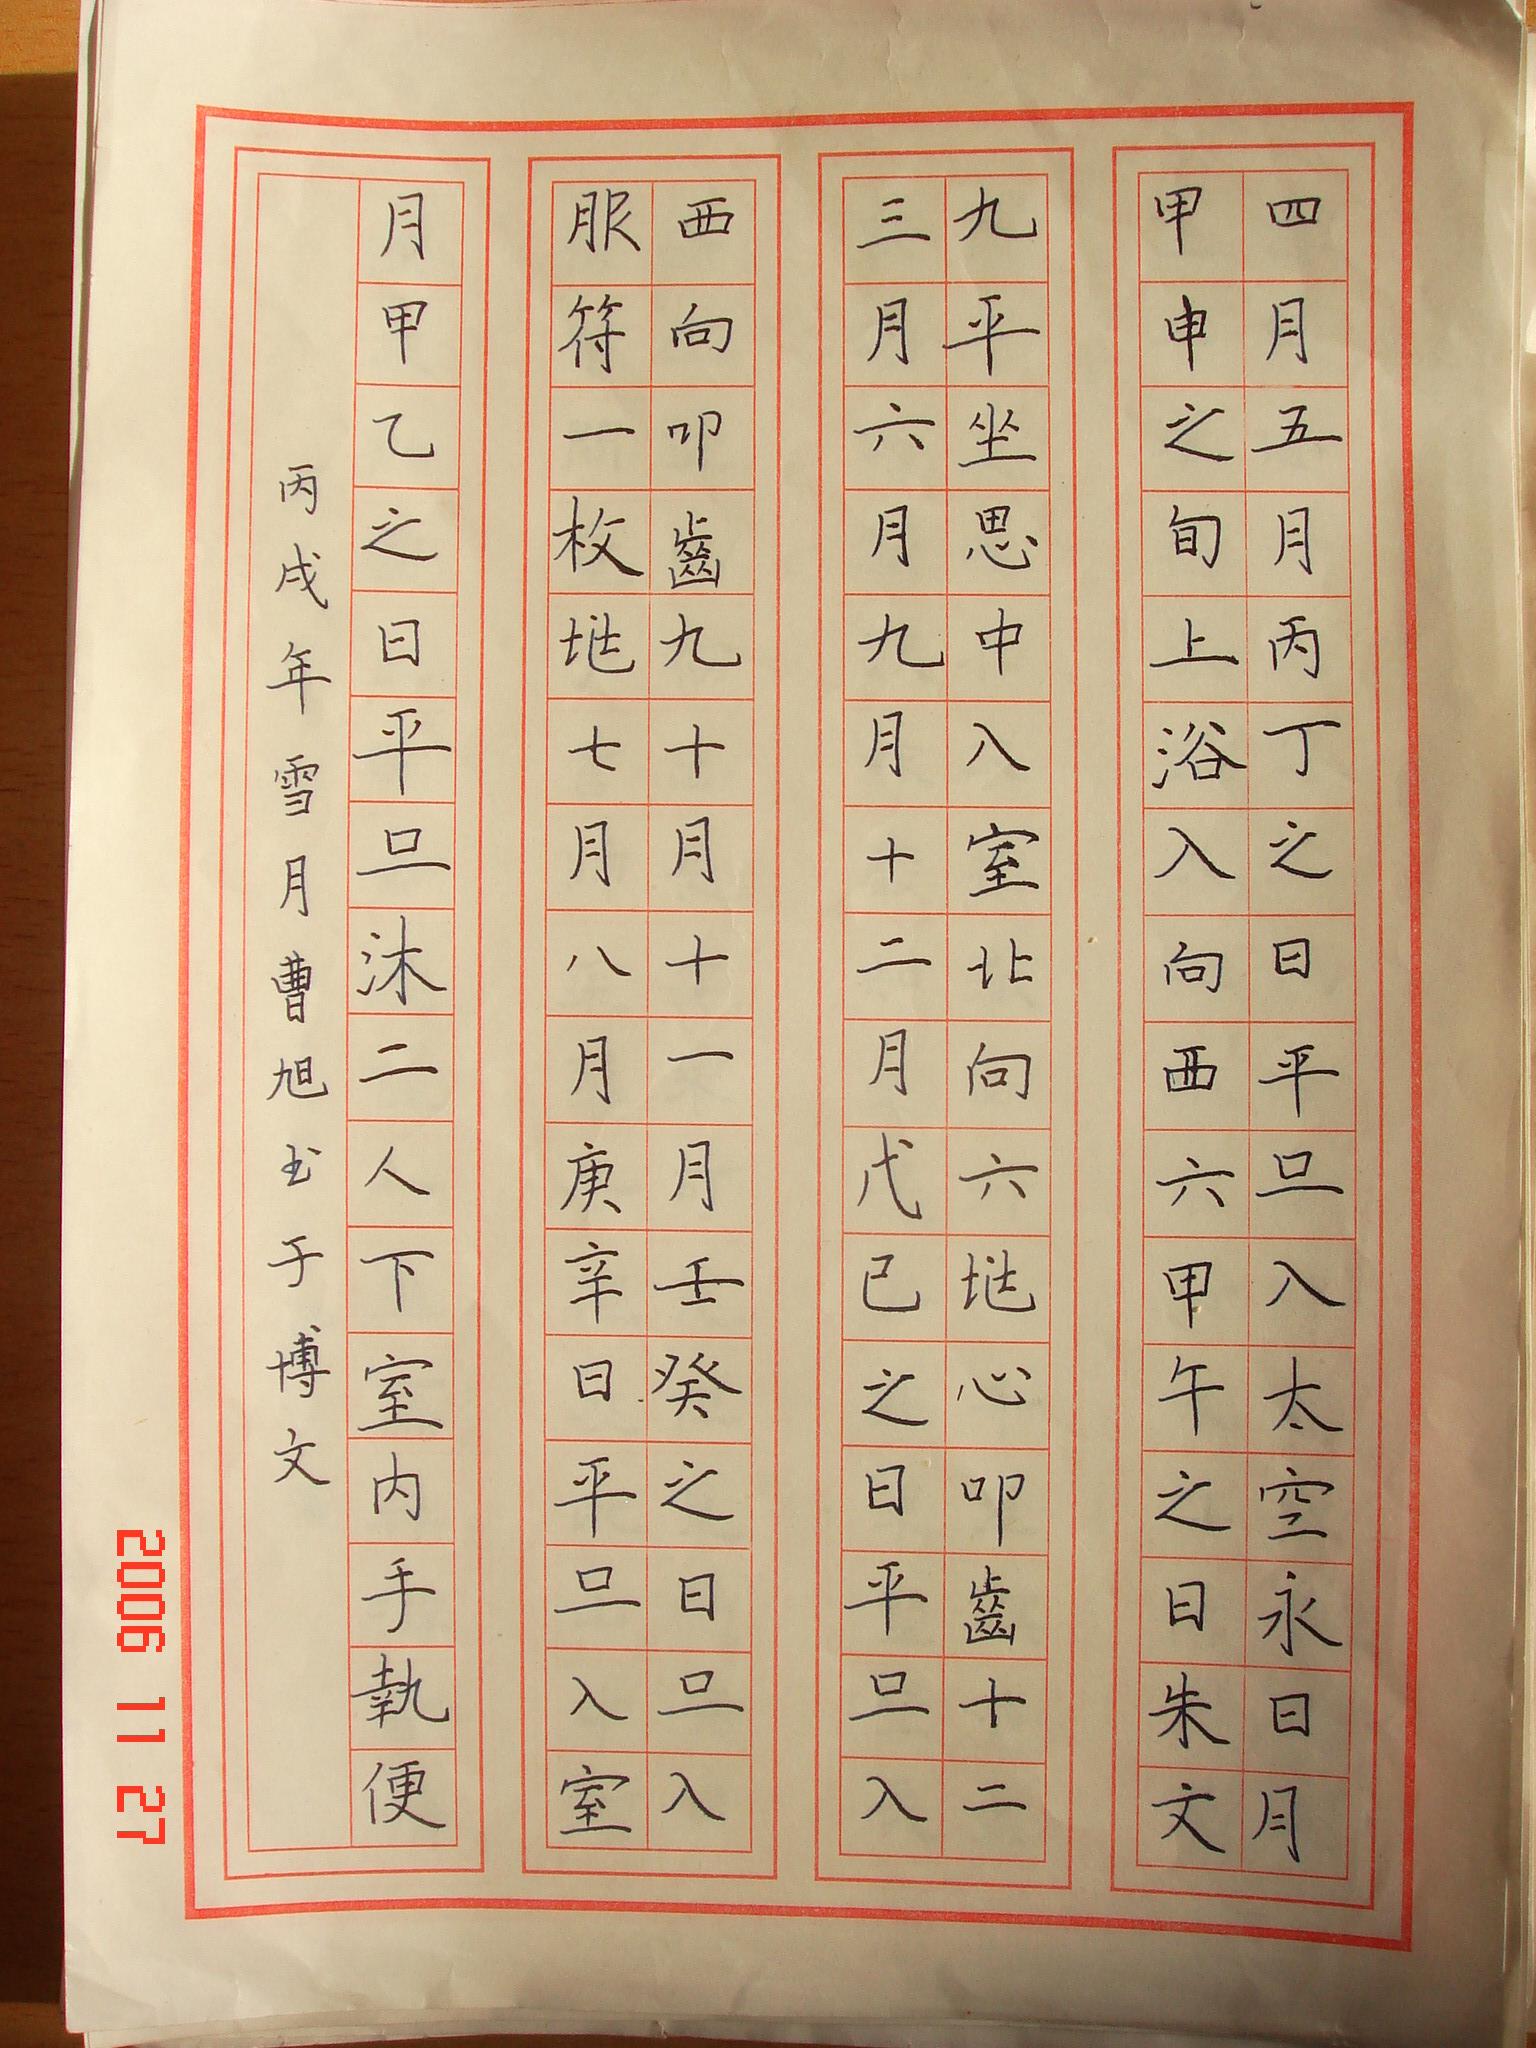 四月五月丙丁之日平旦入太空永日月
甲申之旬上浴入向西六甲午之日朱文
九平坐思中入室北向六地心叩齒十二
三月六月九月十二月戊己之日平旦入
西向叩齒九十月十一月壬癸之日旦入
服符一枚地七月八月庚辛日平旦入室
月甲乙之日平旦沐二人下室内手執便
丙戌年雪月曹旭书于博文
2006 11 27